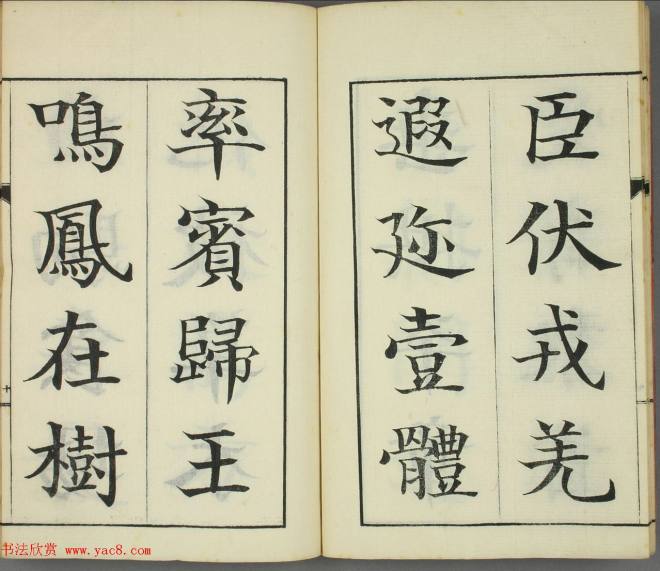 臣伏戎羌
遐迩壹體
率賓歸王
鳴鳳在樹
书法欣赏 www.yac8.com